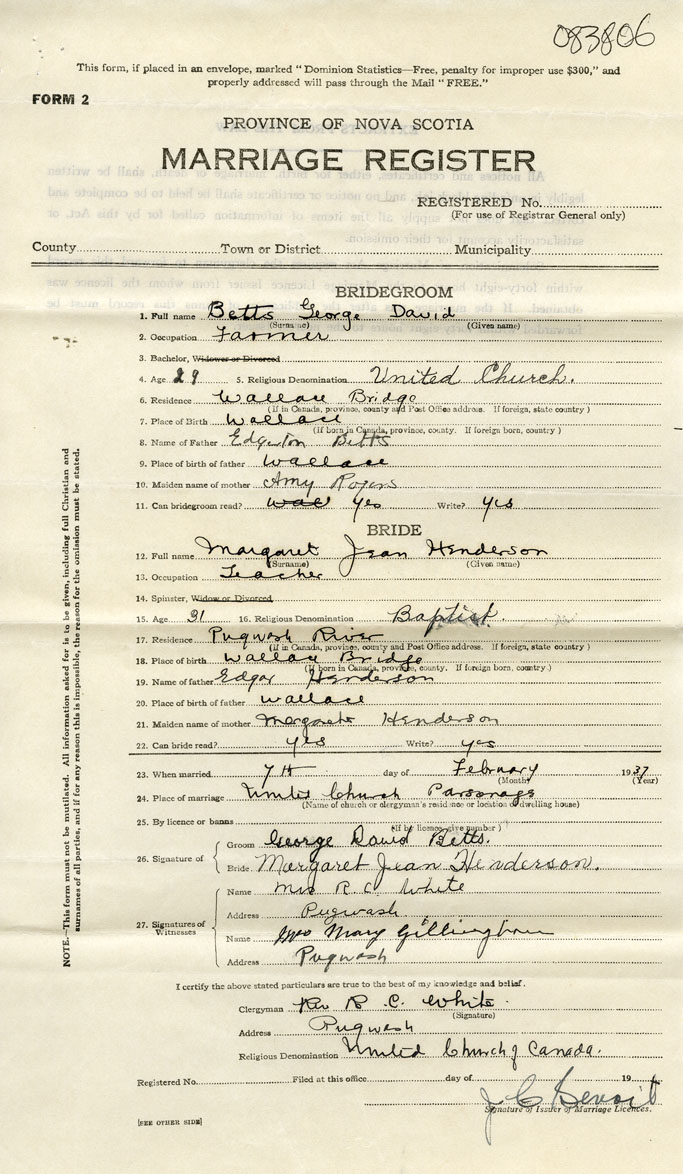 083806
This form, if placed in an envelope, marked "Dominion Statistics—Free, penalty for improper use $300," and
properly addressed will pass through the Mail "FREE."
FORM 2
PROVINCE OF NOVA SCOTIA
MARRIAGE REGISTER
REGISTERED No.
(For use of Registrar General only)
County Town or District Municipality
BRIDEGROOM
1. Full name Betts George David
(Surname) (Given name)
2. Occupation Farmer
3. Bachelor, Widower or Divorced
4. Age 29 5. Religious Denomination United Church.
6. Residence Wallace Bridge
(If in Canada, province, county and Post Office address. If foreign, state country)
7. Place of Birth Wallace
(If born in Canada, province, county. If foreign born, country)
8. Name of Father Edgerton Betts
9. Place of birth of father Wallace
10. Maiden name of mother Amy Rogers
11. Can bridegroom read? Yes Write? Yes
BRIDE
12. Full name Margaret Jean Henderson
(Surname) (Given name)
13. Occupation Teacher
14. Spinster, Widow or Divorced
15. Age 31 16. Religious Denomination Baptist.
17. Residence Pugwash River
(If in Canada, province, county and Post Office address. If foreign, state country)
18. Place of birth Wallace Bridge
(If born in Canada, province, county. If foreign born, country.)
19. Name of father Edgar Henderson
20. Place of birth of father Wallace
21. Maiden name of mother Margaret Henderson
22. Can bride read? yes Write? yes
23. When married 7th day of February 1937
(Month) (Year)
24. Place of marriage United Church Parsonage
(Name of church or clergyman's residence or location of dwelling house)
25. By licence or banns
(If by license, give number)
26. Signature of
Groom George David Betts.
Bride Margaret Jean Henderson.
27. Signatures of Witnesses
Name Mrs R. C. White
Address Pugwash
Name Mrs Mary Gillingham
Address Pugwash
I certify the above stated particulars are true to the best of my knowledge and belief.
Clergyman Rev R. C. White.
(Signature)
Address Pugwash
Religious Denomination United Church of Canada.
Registered No. Filed at this office day of 19
J C Benoit
Signature of Issuer of Marriage Licences.
[SEE OTHER SIDE]
NOTE.—This form must not be mutilated. All information asked for is to be given, including full Christian and
surnames of all parties, and if for any reason this is impossible, the reason for the omission must be stated.